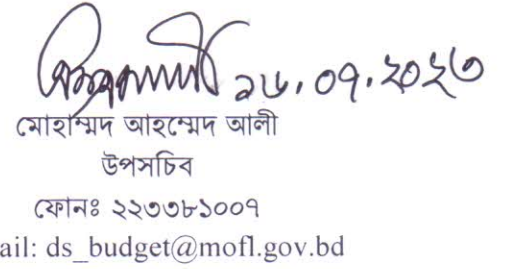 ১৬.০৭.২০২৩
মোহাম্মদ আহম্মেদ আলী
উপসচিব
ফোনঃ ২২৩৩৮১০০৭
ail: ds_budget@mofl.gov.bd